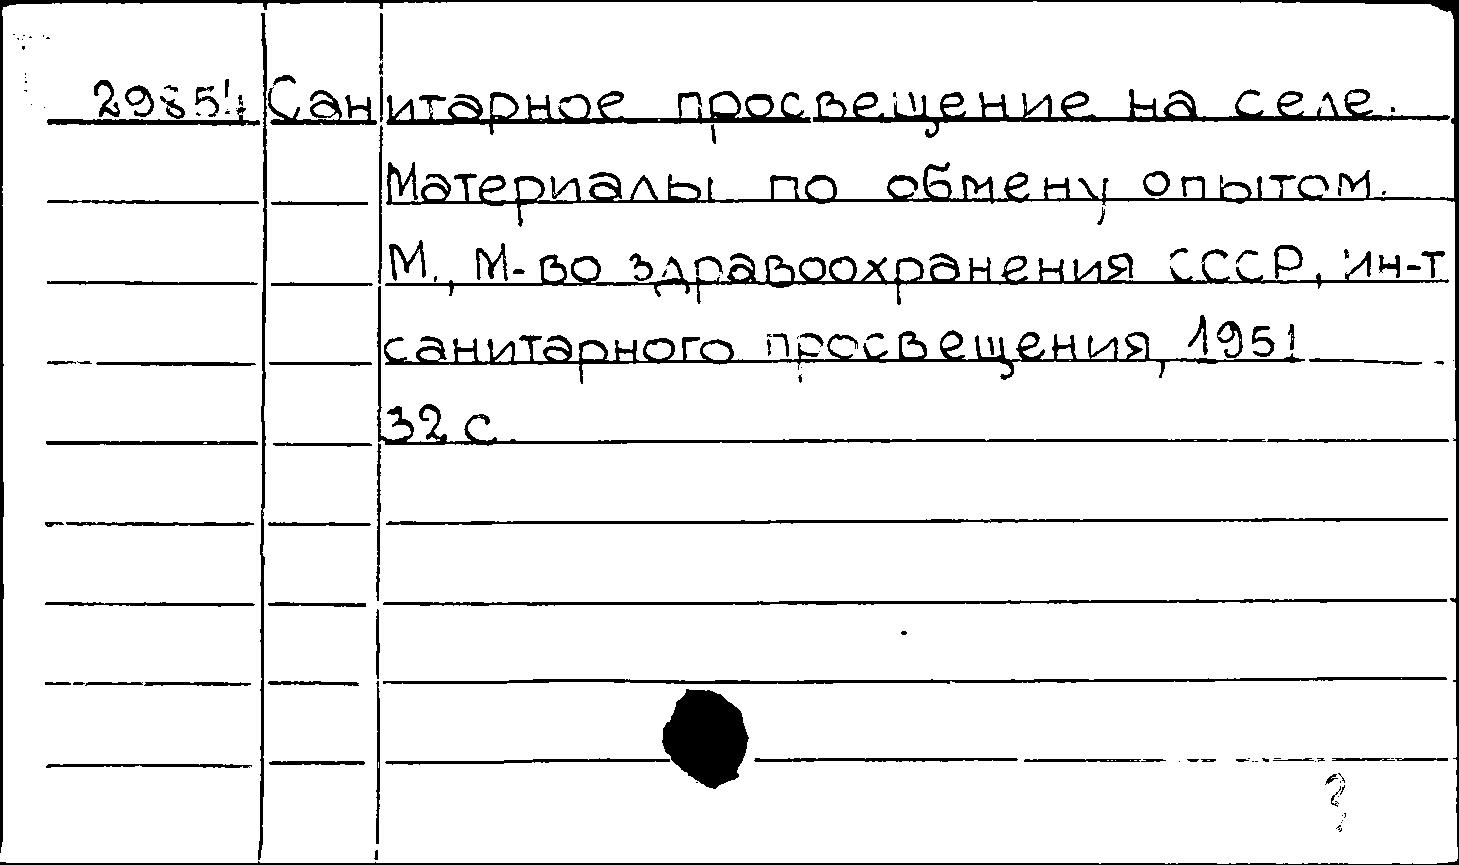 29854 Санитарное просвещение на селе.
Материалы по обмену опытом.
М., М-во здравоохранения СССР, ин-т
санитарного просвещения, 1951
32 с.
?